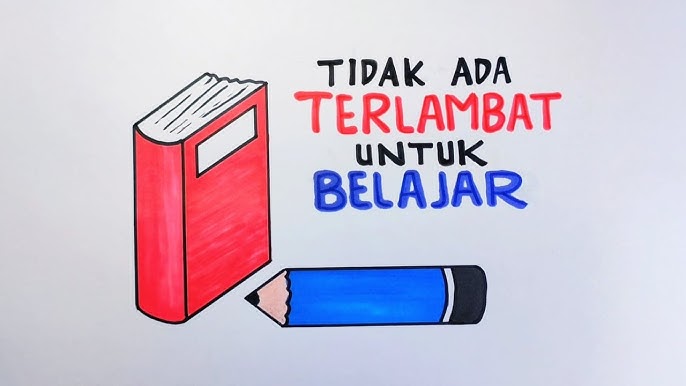 TIDAK ADA
TERLAMBAT
UNTUK
BELAJAR